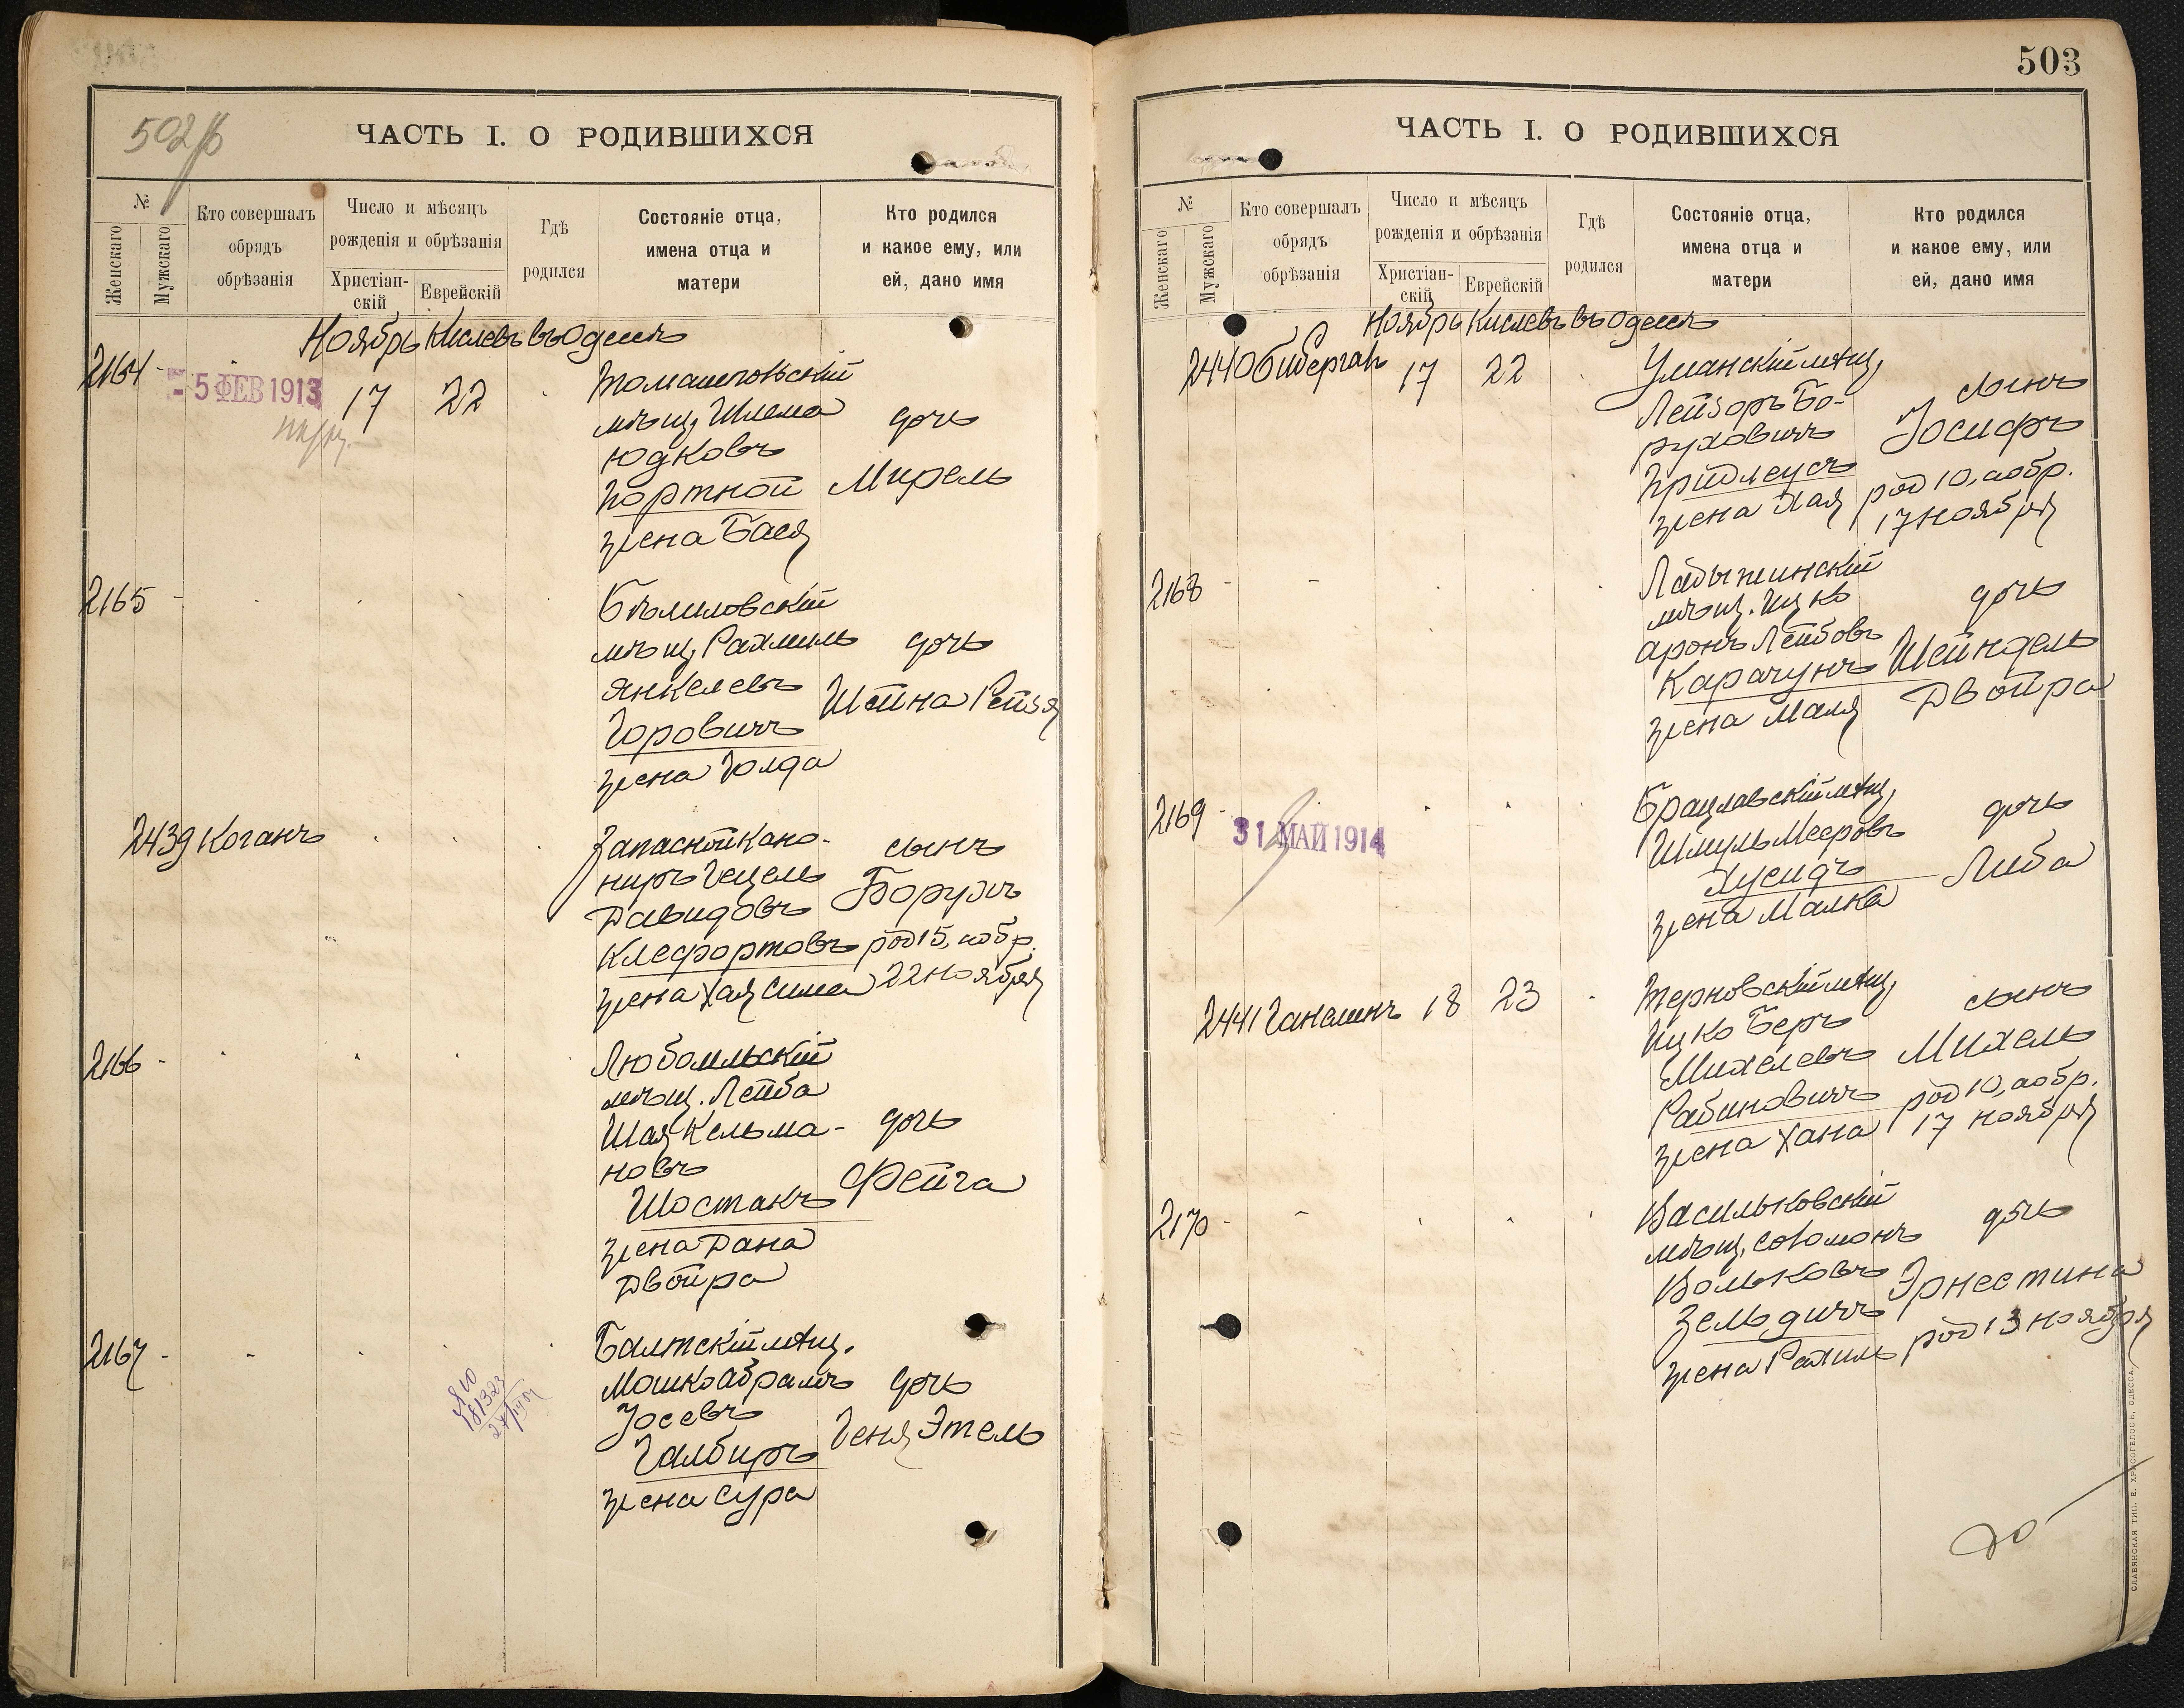 502
ЧАСТЬ I. О РОДИВШИХСЯ
№
Женскаго
Мужскаго
Кто совершалъ
обрядъ
обрѣзанія
Число и мѣсяцъ
рожденія и обрѣзанія
Христіан-
скій
Еврейскій
Гдѣ
родился
Состояніе отца,
имена отца и
матери
Кто родился
и какое ему, или
ей, дано имя
Ноябрь Кислевъ въ Одессѣ
2164 -
- 5 ФЕВ 1913
17 22
Томашпольскій
мѣщ. Шлема
Юдковъ
Портной
жена Бася
дочь
Мирель
2165 -
мѣщ. Рахмиль
Янкелевъ
Горовичъ
жена Голда
дочь
Шейна Рейзя
2439 Коганъ
Запасной Кано-
ниръ Гецель
Давидовъ
Клефортовъ
жена Хая Сима
сынъ
Борухъ
род 15, аобр.
22 ноября
2166 -
Любомльскій
мѣщ. Лейба
Шая Кельма-
новъ
Шостакъ
жена Дана
Двойра
дочь
Фейга
2167 - -
Балтскій мѣщ.
Мошко Абрамъ
Іосевъ
Галбиръ
жена Сура
дочь
Геня Этель
503
ЧАСТЬ I. О РОДИВШИХСЯ
№
Женскаго
Мужскаго
Кто совершалъ
обрядъ
обрѣзанія
Число и мѣсяцъ
рожденія и обрѣзанія
Христіан-
скій
Еврейскій
Гдѣ
родился
Состояніе отца,
имена отца и
матери
Кто родился
и какое ему, или
ей, дано имя
Ноябрь Кислевъ въ Одессѣ
2440 Бибергал
17 22
Уманскій мѣщ.
Лейзоръ Бо-
руховичъ
Придлеусъ
жена Хая
сынъ
Іосифъ
род 10, аобр.
17 ноября
2168 - -
Ладыжинскій
мѣщ. Ицко
Аронъ Лейбовъ
Карачунъ
жена Маля
дочь
Шейндель
Двойра
2169 -
31 МАЙ 1914
Брацлавскій мѣщ.
Шмуль Мееровъ
Хусидъ
жена Малка
дочь
Либа
2441 Ганелинъ 18 23
Терновскій мѣщ.
Ицко Беръ
Михелевъ
Рабиновичъ
жена Хана
сынъ
Михель
род 10, аобр.
17 ноября
2170 - -
Васильковскій
мѣщ. Соломонъ
Вольковъ
Зельдичъ
жена Рахиль
дочь
Эрнестина
род 13 ноября
СЛАВЯНСКАЯ ТИП. Е. ХРИСОГЕЛОСЪ, ОДЕССА.